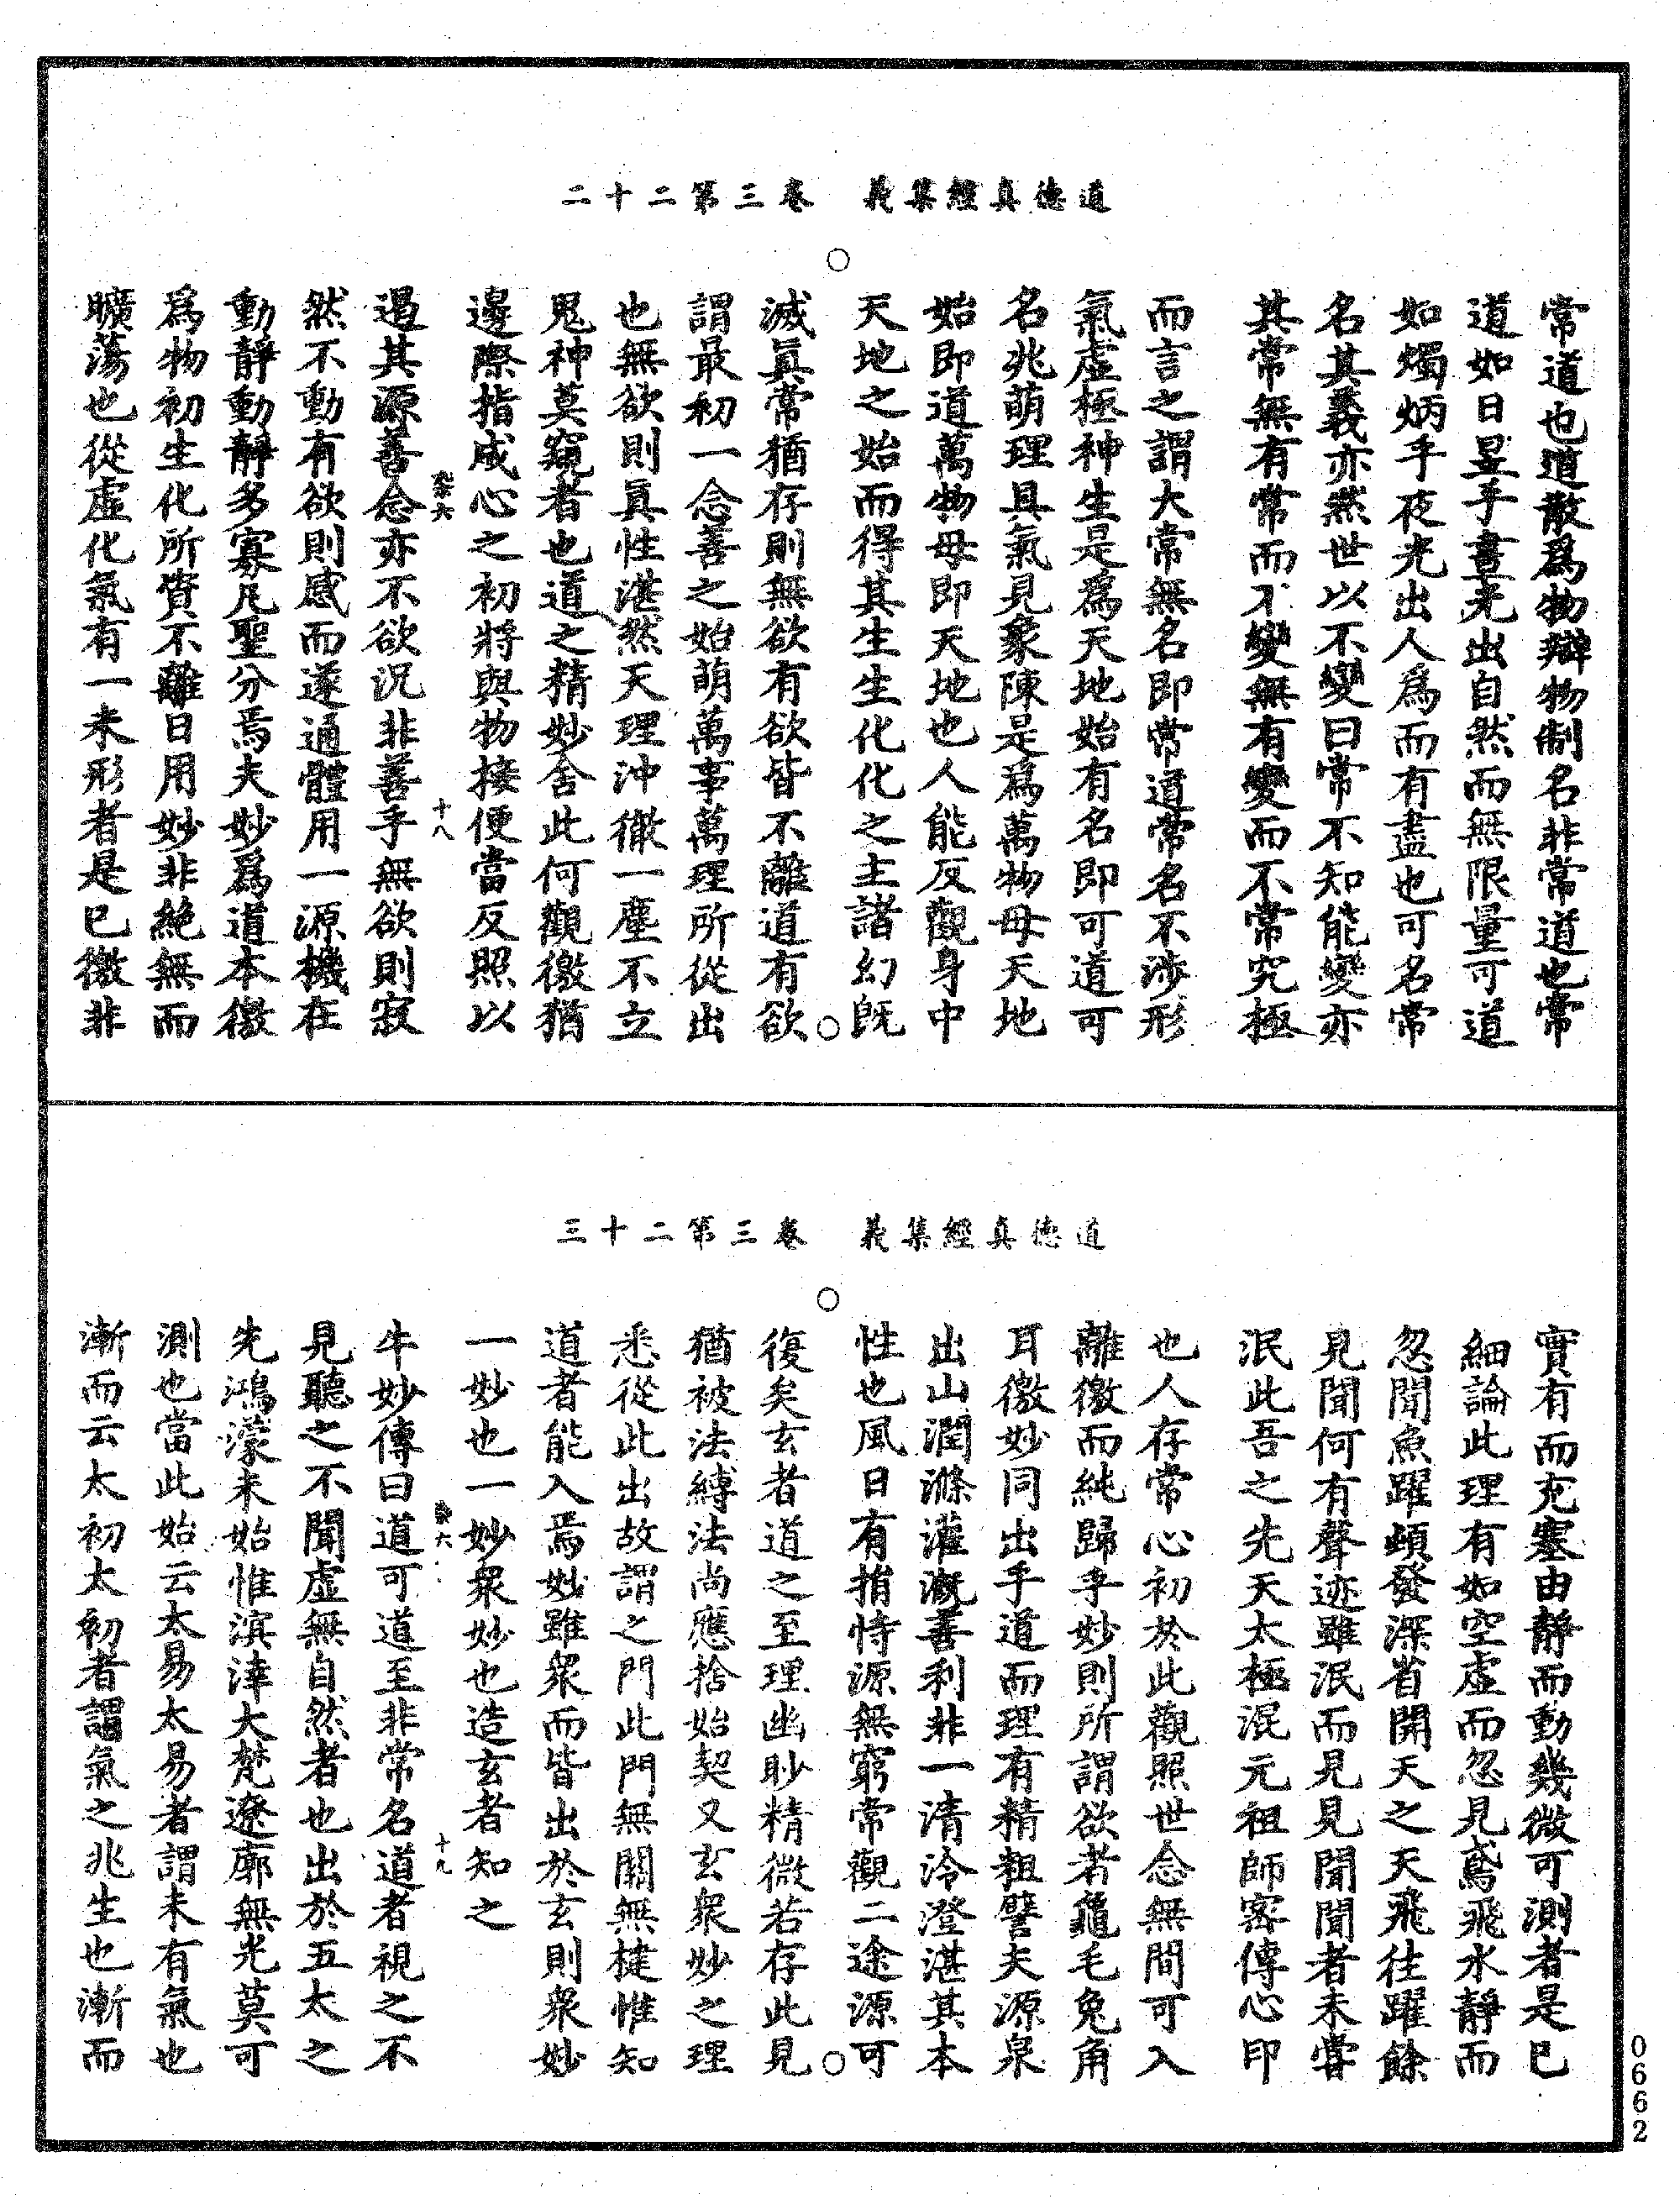 道德真經集義　卷三第二十二
常道也道散爲物辯物制名非常道也常
道如日昱乎晝光出自然而無限量可道
如燭炳乎夜光出人爲而有盡也可名常
名其義亦然世以不變曰常不知能變亦
其常無有常而不變無有變而不常究極
而言之謂大常無名即常道常名不涉形
氣虛極神生是爲天地始有名即可道可
名兆萌理具氣見象陳是爲萬物母天地
始即道萬物母即天地也人能反觀身中
天地之始而得其生生化化之主諸幻旣
滅眞常猶存則無欲有欲皆不離道有欲
謂最初一念善之始萌萬事萬理所從出
也無欲則眞性湛然天理沖徹一塵不立
鬼神莫窺者也道之精妙舍此何觀徼猶
邊際指成心之初將與物接便當反照以
遏其源善念亦不欲況非善乎無欲則寂
然不動有欲則感而遂通體用一源機在
動靜動靜多寡凡聖分焉夫妙爲道本徼
爲物初生化所資不離日用妙非絶無而
曠蕩也從虛化氣有一未形者是已徼非
十八
道德真經集義　卷三第二十三
實有而充塞由靜而動幾微可測者是已
細論此理有如空虛而忽見鳶飛水靜而
忽聞魚躍頓發深省開天之天飛往躍餘
見聞何有聲迹雖泯而見見聞聞者未嘗
泯此吾之先天太極混元祖師密傳心印
也人存常心初於此觀照世念無間可入
離徼而純歸乎妙則所謂欲者龜毛兔角
耳徼妙同出乎道而理有精粗譬夫源泉
出山潤滌灌溉善利非一清泠澄湛其本
性也風日有損恃源無窮常觀二途源可
復矣玄者道之至理幽眇精微若存此見
猶被法縛法尚應捨始契又玄衆妙之理
悉從此出故謂之門此門無關無楗惟知
道者能入焉妙雖衆而皆出於玄則衆妙
一妙也一妙衆妙也造玄者知之
牛妙傳曰道可道至非常名道者視之不
見聽之不聞虛無自然者也出於五太之
先鴻濛未始惟滨涬大梵遼廓無光莫可
測也當此始云太易太易者謂未有氣也
漸而云太初太初者謂氣之兆生也漸而
十九
0662